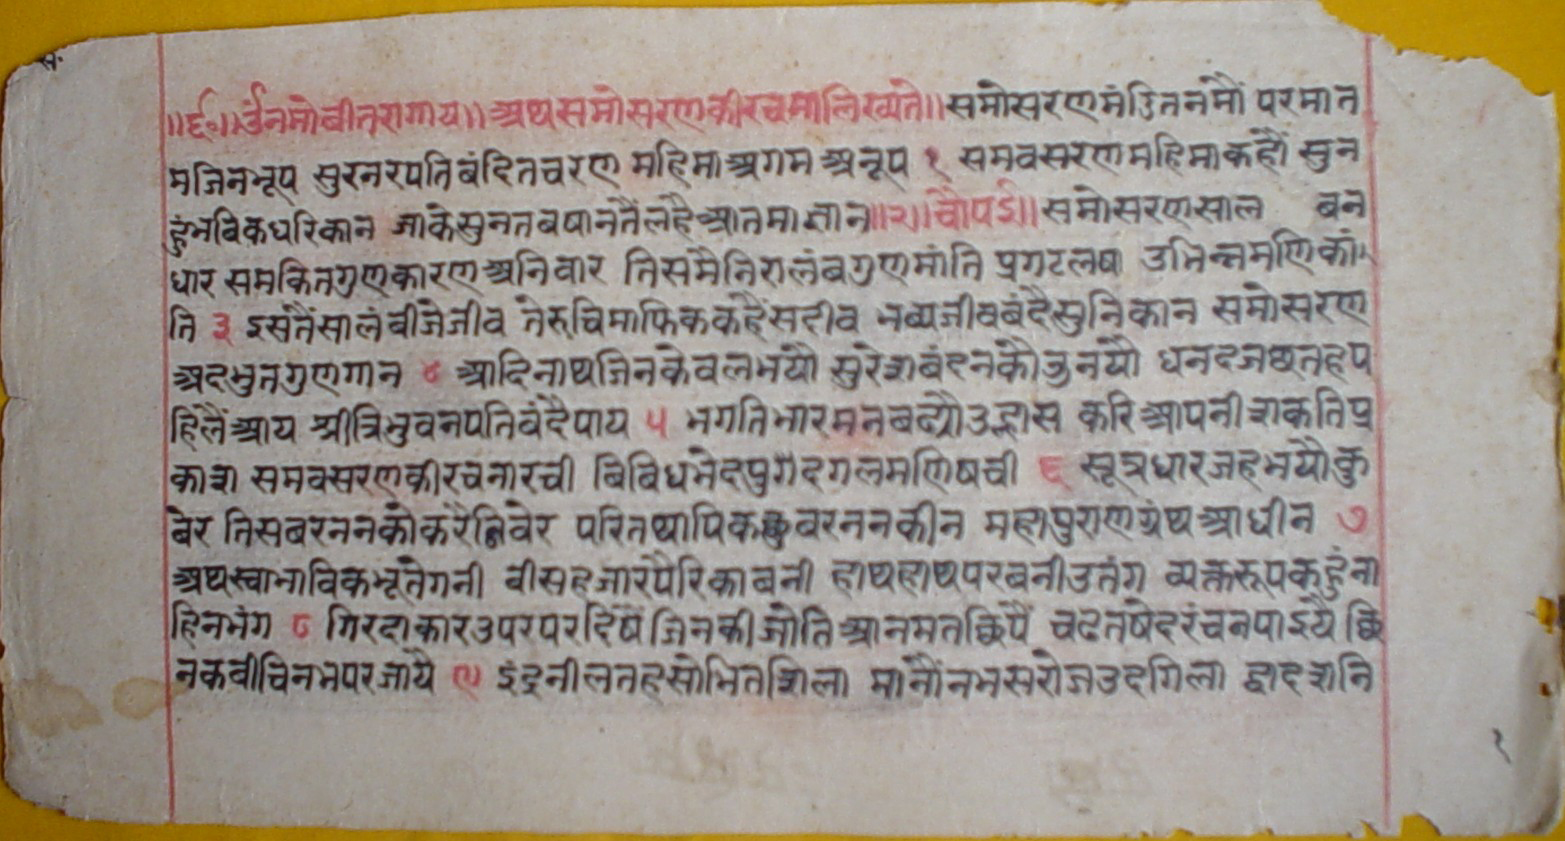 स.
॥६०॥ उंनमोवीतरागाय॥ अथसमोसरणकीरचमालिख्यते॥ समोसरणमंडितनमौं परमात
मजिनभूप सुरनरपतिबंदितचरण महिमाअगमअनूप १ समवसरणमहिमाकहौं सुन
हुंभविकधरिकान जाकेसुनतबषानतैंलहैआतमाज्ञान॥२॥चौपई॥ समोसरणसाल बन
धार समकितगुणकारणअनिवार तिसमैनिरालंबगुणमांति प्रगटलषा उतिन्नमणिकां
ति ३ इसतैंसालंबीजेजीव तेरुचिमाफिककहैंसदीव भव्यजीवबंदैसुनिकान समोसरण
अदभुतगुणगान ४ आदिनाथजिनकेवलभयौ सुरेशबंदनकौजुनयौ धनदजछतहप
हिलैंआय श्रीत्रिभुवनपतिवंदैपाय ५ भगतिभारमनबढ्यौउल्हास करिआपनीशकतिप्र
काश समवसरणकीरचनारची बिबिधभेदपुगदगलमणिषची ६ सूत्रधारजहभयौकु
बेर तिसबरननकोकरैनिवेर परितथापिकछुवरननकीन महापुराणग्रंथआधीन ७
अथस्वाभाविकभूतेगनी वीसहजारपैरिकाबनी हाथहाथपरबनीउतंग व्यक्तरूपकहुंना
हिनभंग ८ गिरदाकारउपरपरदिषैं जिनकीजोतिआनमतछिपैं चढतषेदरंचनपाइयै छि
नकवीचिनभपरजायै ९ इंद्रनीलतहसोभितशिला मानौंनभसरोजउदगिला द्वादशनि
१